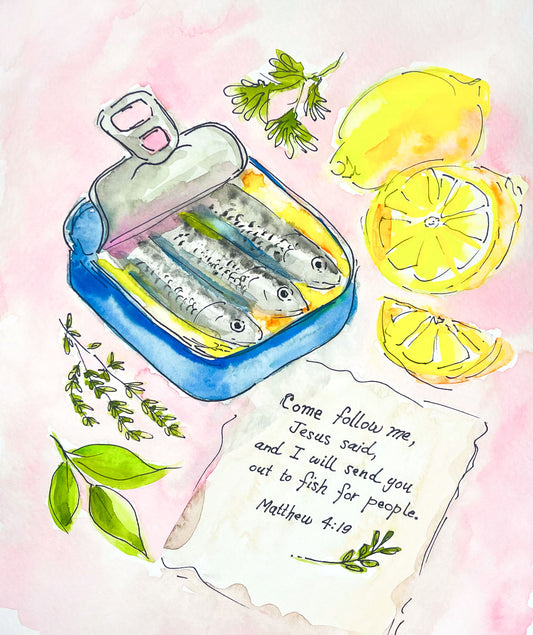 Come follow me,
Jesus said,
and I will send you
out to fish for people.
Matthew 4:19